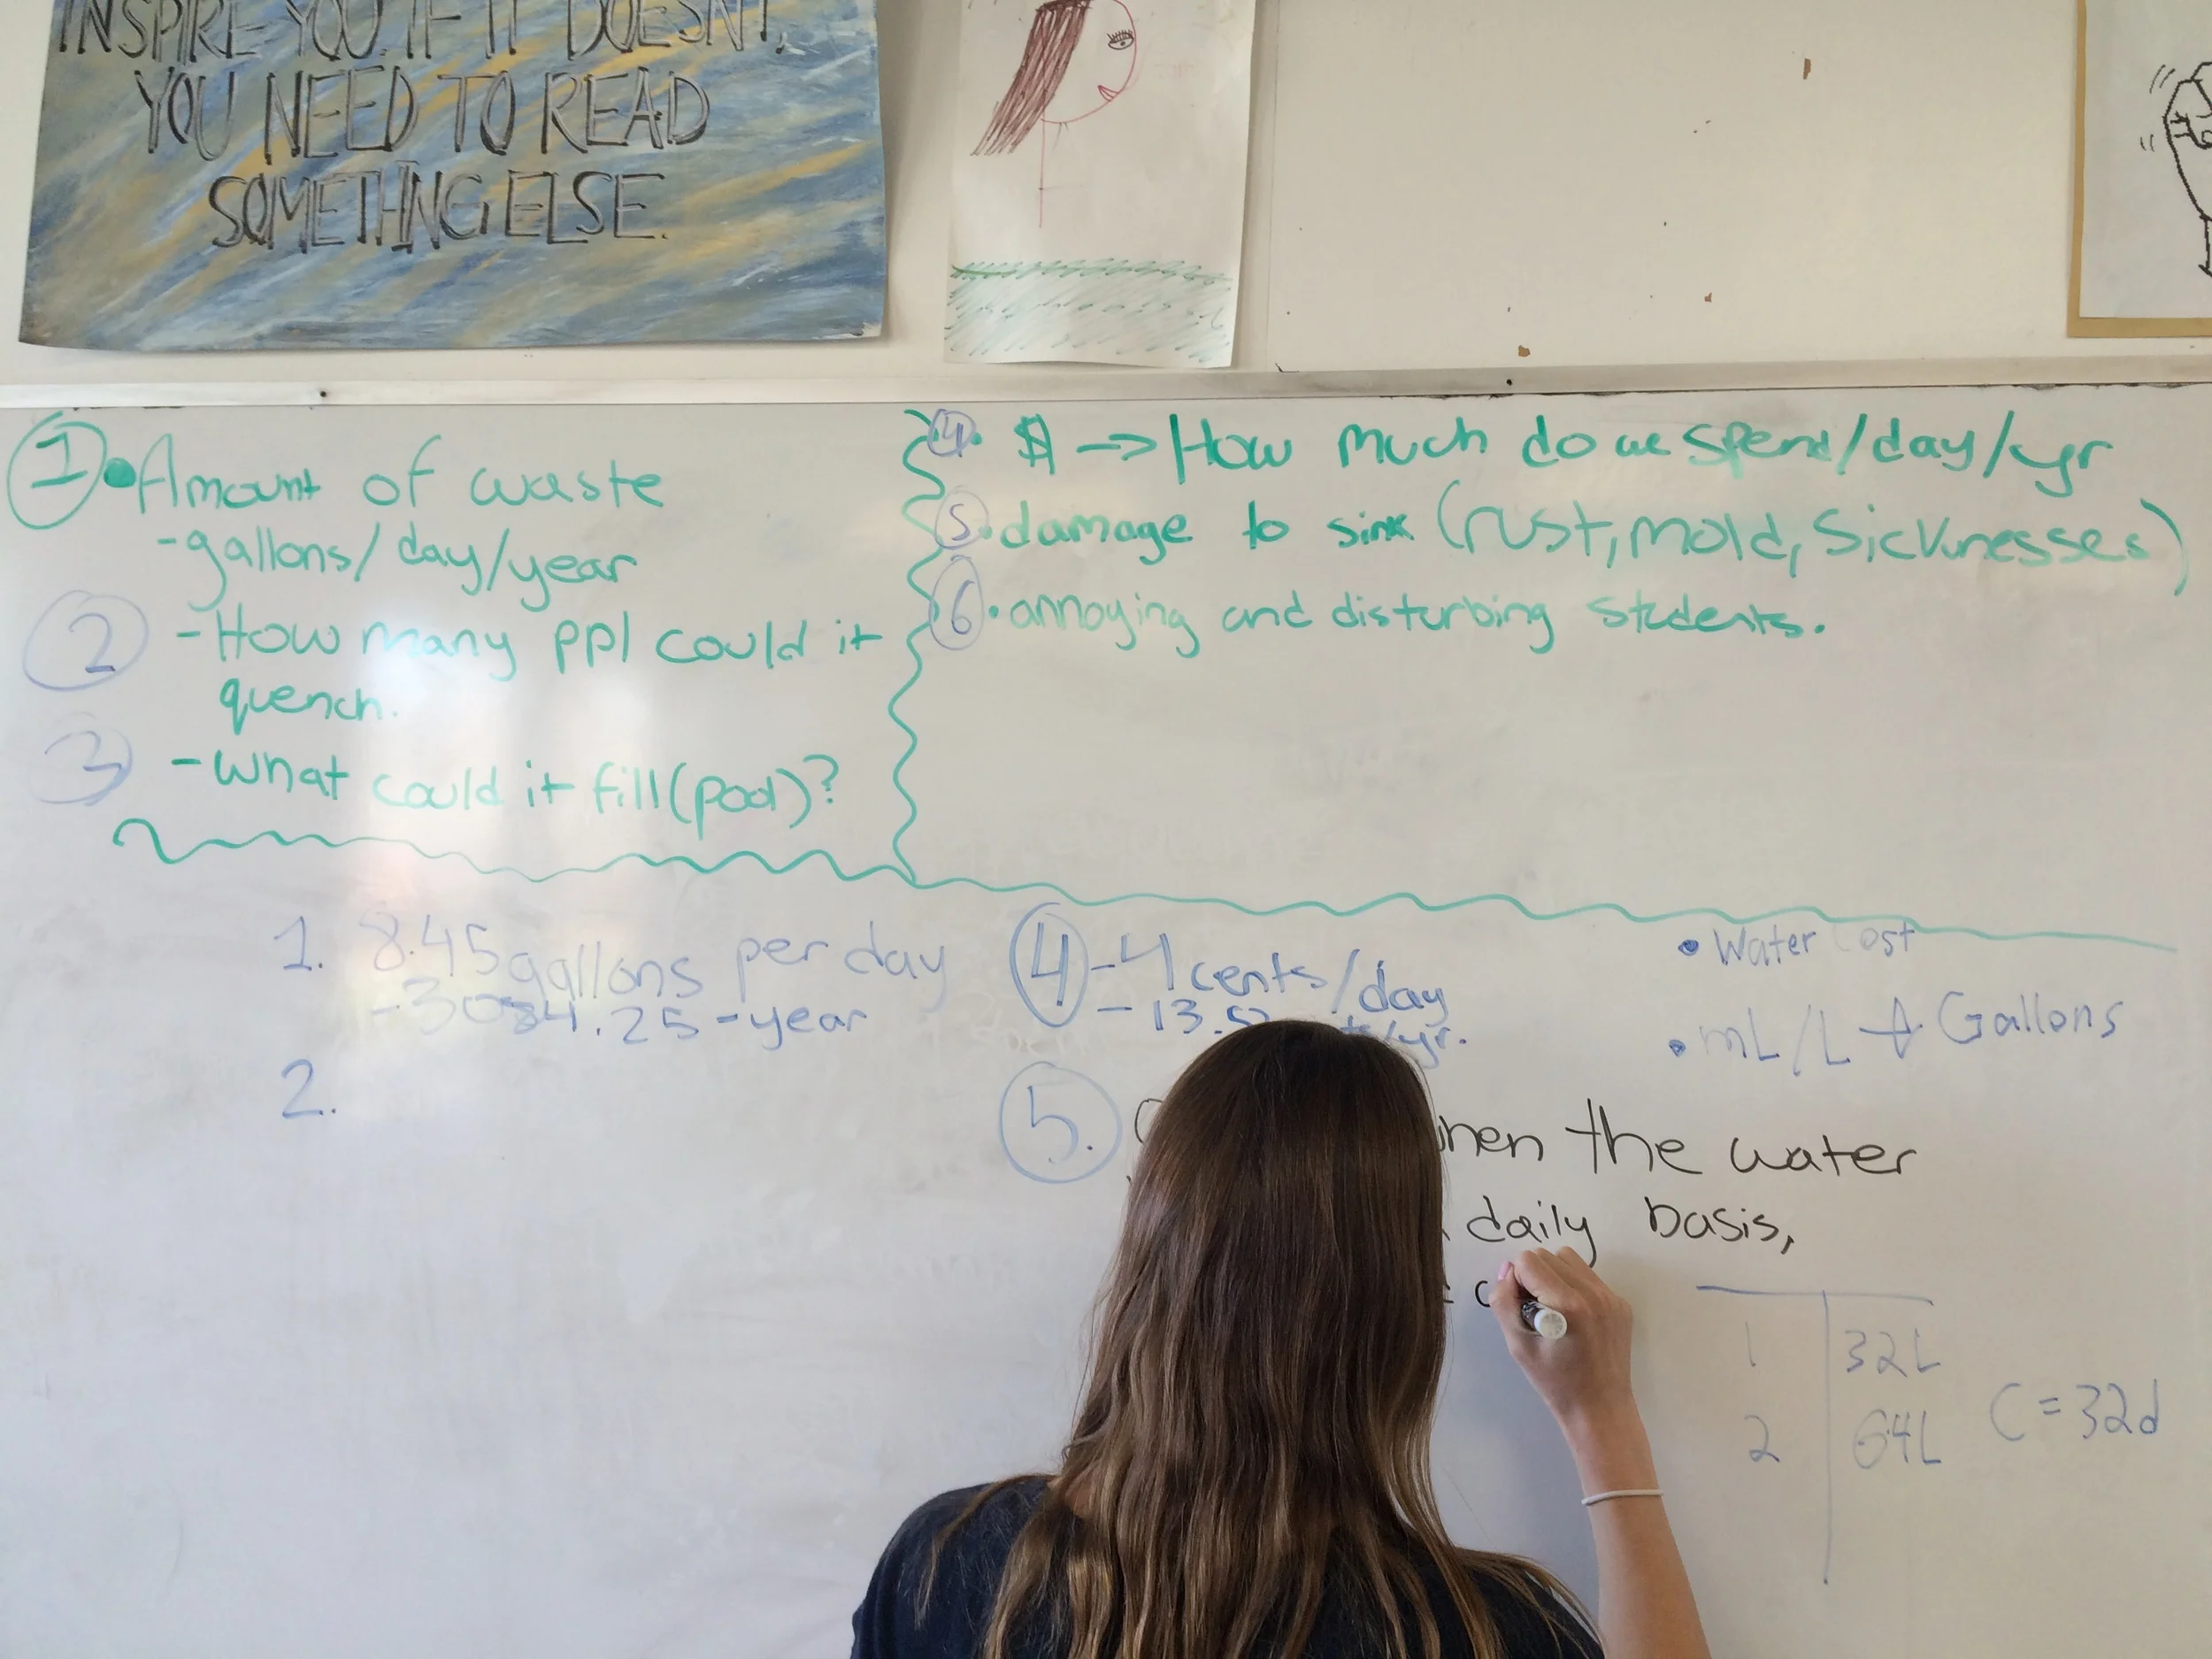 INSPIRE YOU. IF IT DOESN'T,
YOU NEED TO READ
SOMETHING ELSE.
1 • Amount of waste
- gallons/day/year
2 - How many ppl could it
quench.
3 - What could it fill (pool)?
4. $ → How much do we spend/day/yr
5. damage to sink (rust, mold, sicknesses)
6. annoying and disturbing students.
1. 8.45 gallons per day
- 3084.25 - year
2.
4 - 4 cents/day
- 13.5 /yr.
5. the water
daily basis,
• Water Cost
• mL/L → Gallons
1 32L
2 64L
C = 32d